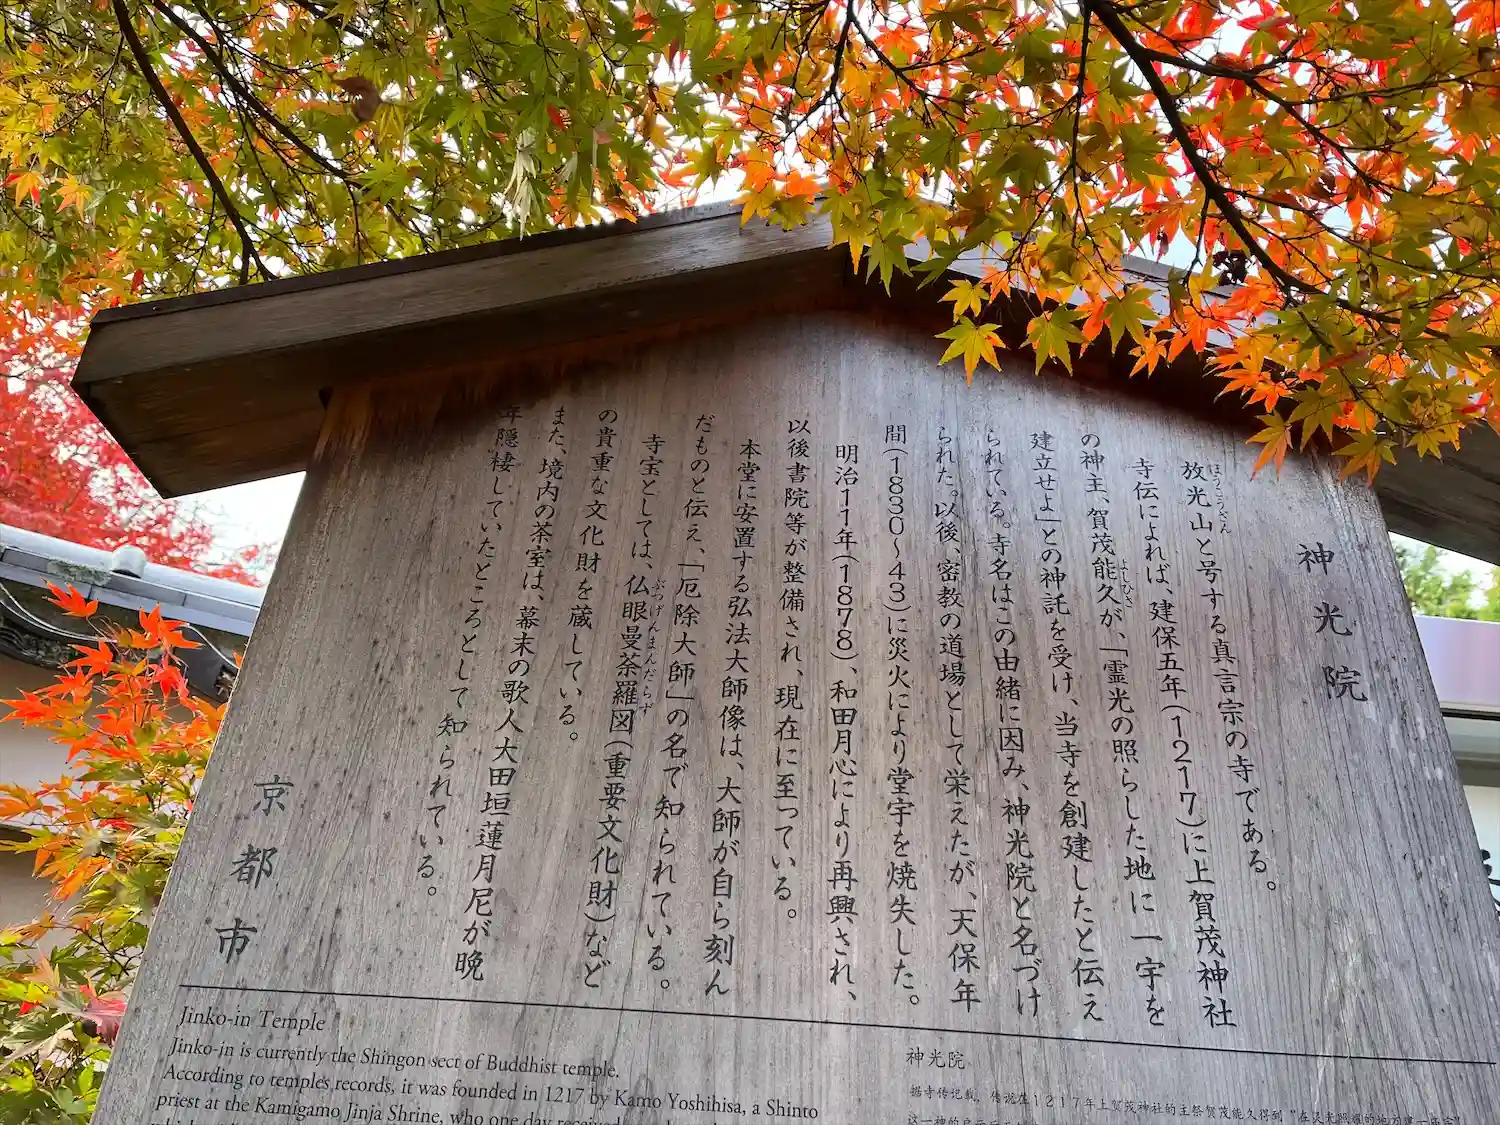 神光院
放光山と号する真言宗の寺である。
ほうこうざん
寺伝によれば、建保五年(1217)に上賀茂神社
の神主、賀茂能久が、「霊光の照らした地に一宇を
よしひさ
建立せよ」との神託を受け、当寺を創建したと伝え
られている。寺名はこの由緒に因み、神光院と名づけ
られた。以後、密教の道場として栄えたが、天保年
間(1830〜43)に災火により堂宇を焼失した。
明治11年(1878)、和田月心により再興され、
以後書院等が整備され、現在に至っている。
本堂に安置する弘法大師像は、大師が自ら刻ん
だものと伝え、「厄除大師」の名で知られている。
寺宝としては、仏眼曼荼羅図(重要文化財)など
ぶつげんまんだらず
の貴重な文化財を蔵している。
また、境内の茶室は、幕末の歌人大田垣蓮月尼が晩
年隠棲していたところとして知られている。
京都市
Jinko-in Temple
Jinko-in is currently the Shingon sect of Buddhist temple.
According to temples records, it was founded in 1217 by Kamo Yoshihisa, a Shinto
priest at the Kamigamo Jinja Shrine, who one day received
神光院
据寺传记载，传说在1217年上贺茂神社的主祭贺茂能久得到“在灵光照耀的地方建一座宇”